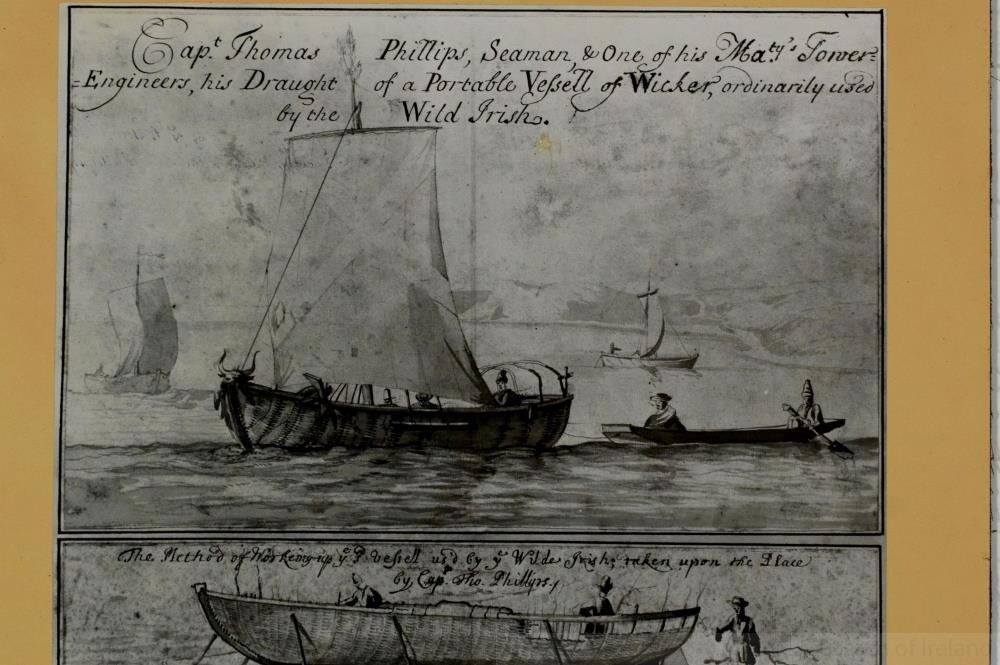 Capt Thomas Phillips, Seaman, & One of his Maty's Tower=
=Engineers, his Draught of a Portable Vessell of Wicker, ordinarily used
by the Wild Irish.
The Method of Workeing up ye sd Vessell us'd by ye Wilde Irish; taken upon the Place
by Cap. Tho. Phillips.
of Ireland